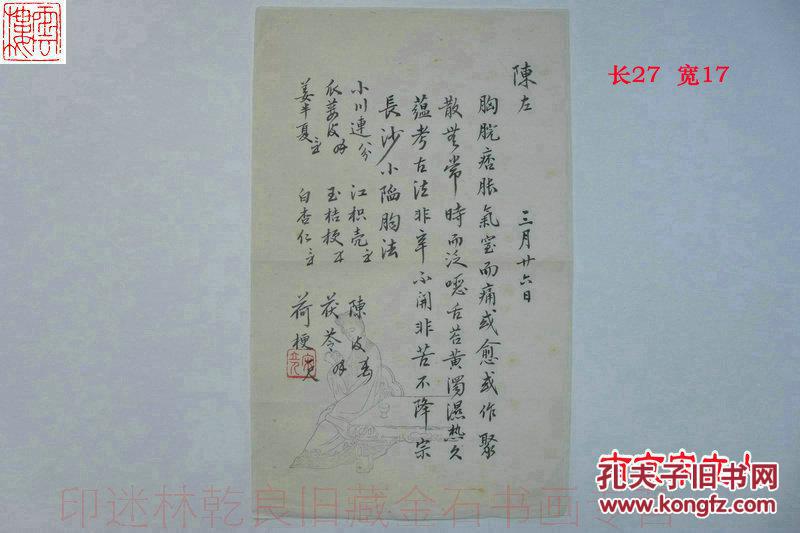 陳左
三月廿六日
胸脘痞脹氣窒而痛或愈或作聚
散無常時而泛噁舌苔黃濁濕熱久
蘊考古法非辛不開非苦不降宗
長沙小陷胸法
小川連 江枳壳 陳皮
瓜蔞皮 玉桔梗 茯苓
姜半夏 白杏仁 荷梗
长27 宽17
印迷林乾良旧藏金石书画专售
孔夫子旧书网
www.kongfz.com